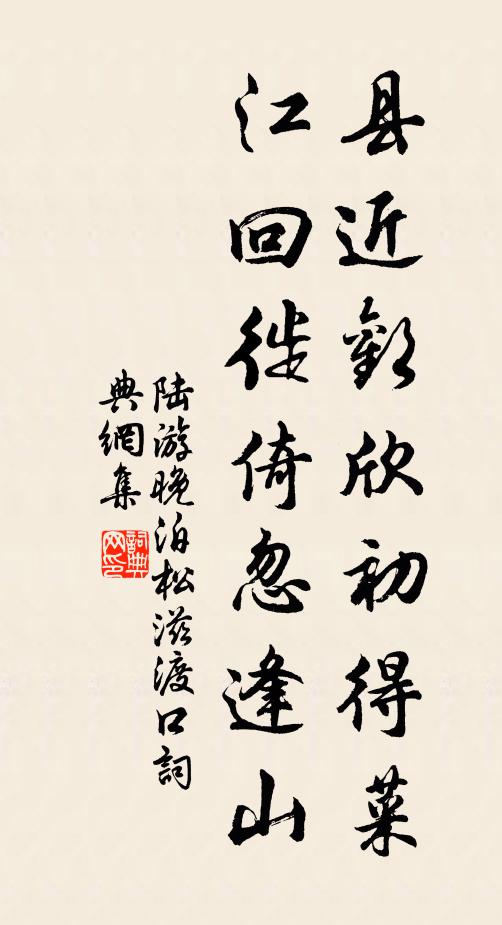 县近歡欣初得菜
江回徙倚忽逢山
陆游晚泊松滋渡口詞
典網集
詞典
网印